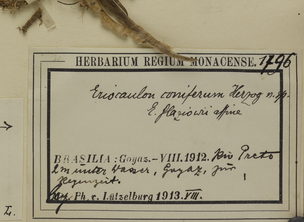 HERBARIUM REGIUM MONACENSE. 1796
Eriocaulon coniferum Herzog n. sp.
E. Glaziovii affine
BRASILIA: Goyaz.-VIII. 1912. Rio Preto
1 m unter Wasser, Goyaz, zur
Regenzeit.
leg. Ph. v. Lützelburg 1913. VIII.